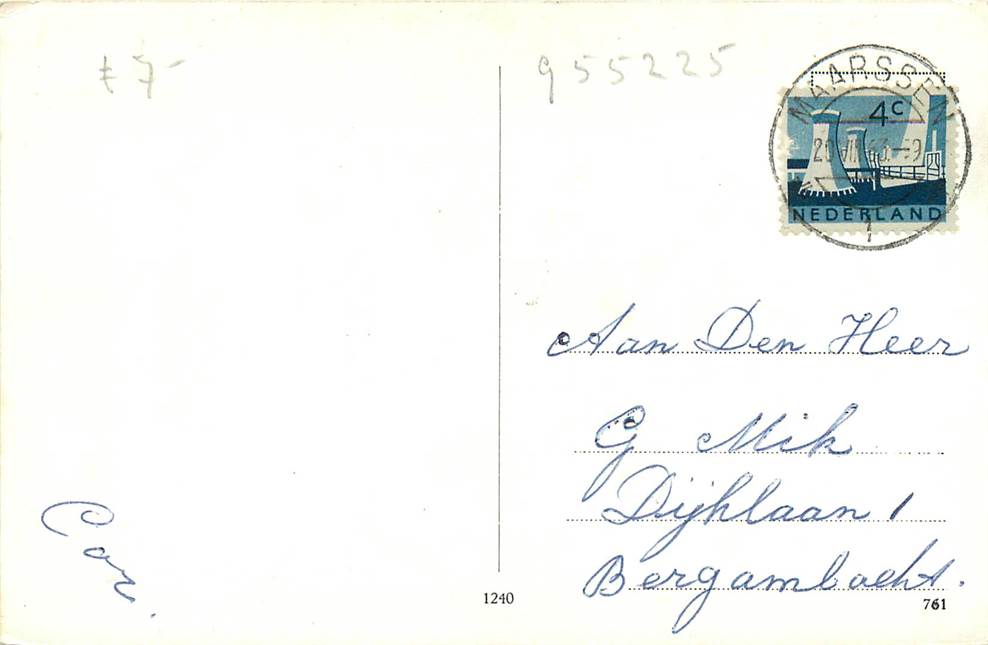 € 7-
955225
MAARSSEN
4c
NEDERLAND
1
Aan Den Heer
G Mik
Dijklaan 1
Bergambacht.
Cor.
1240
761